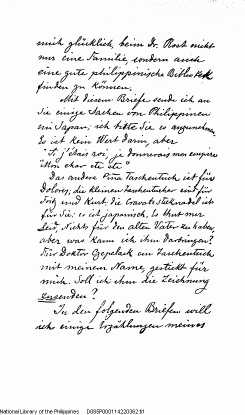 mich glücklich beim Dr. Rost nicht
nur eine Familie sondern auch
eine gute philippinische Bibliothek
finden zu können.
Mit diesem Briefe sende ich an
Sie einige Sachen von Philippinen
und Japan; ich bitte Sie es anzunehmen.
Es ist kein Wert darin, aber
"Si j'étais roi, je donnerais mon empire
Mon char etc etc"
Das andere Piña Taschentuch ist für
Dolores; die kleinen Taschentücher sind für
Fritz und Kurt. Die Cravate Stecknadel ist
für Sie; es ist japanisch. Es thut mir
Leid, Nichts für den alten Vater zu haben,
aber was kann ich ihm darbringen?
Für Doktor Czepelack ein Taschentuch
mit meinem Name, gestickt für
mich. Soll ich ihm die Zeichnung
zusenden?
In den folgenden Briefen will
ich einige Erzählungen meines
National Library of the Philippines D08SP00011422036231